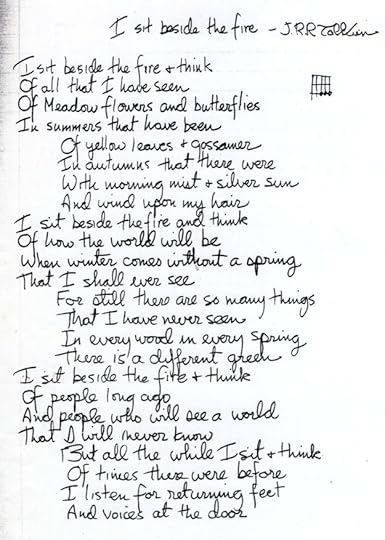 I sit beside the fire - J.R.R Tolkien
I sit beside the fire & think
Of all that I have seen
Of Meadow flowers and butterflies
In summers that have been
Of yellow leaves & gossamer
In autumns that there were
With morning mist & silver sun
And wind upon my hair
I sit beside the fire and think
Of how the world will be
When winter comes without a spring
That I shall ever see
For still there are so many things
That I have never seen
In every wood in every spring
There is a different green
I sit beside the fire & think
Of people long ago
And people who will see a world
That I will never know
But all the while I sit & think
Of times there were before
I listen for returning feet
And voices at the door